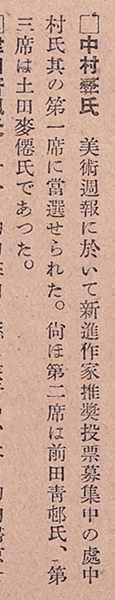 □中村彝氏　美術週報に於いて新進作家推奬投票募集中の處中
村氏其の第一席に當選せられた。尙ほ第二席は前田靑邨氏、第
三席は土田麥僊氏であつた。